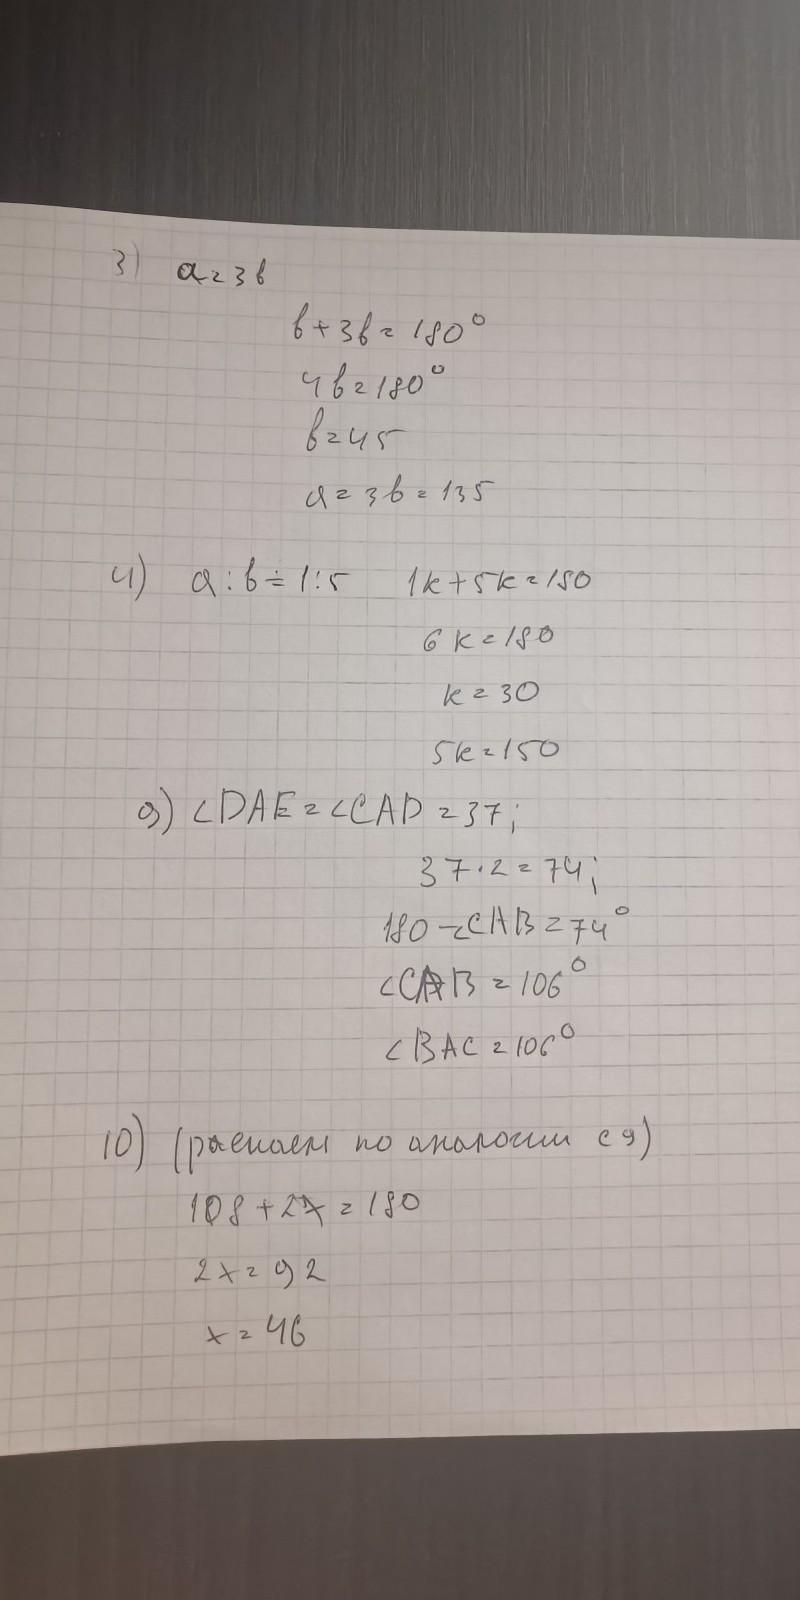 3) a=3b
b+3b=180°
4b=180°
b=45
a=3b=135
4) a:b=1:5 1k+5k=180
6k=180
k=30
5k=150
9) ∠DAE=∠CAD=37;
37·2=74;
180-∠CAB=74°
∠CAB=106°
∠BAC=106°
10) (решаем по аналогии с 9)
108+2x=180
2x=92
x=46